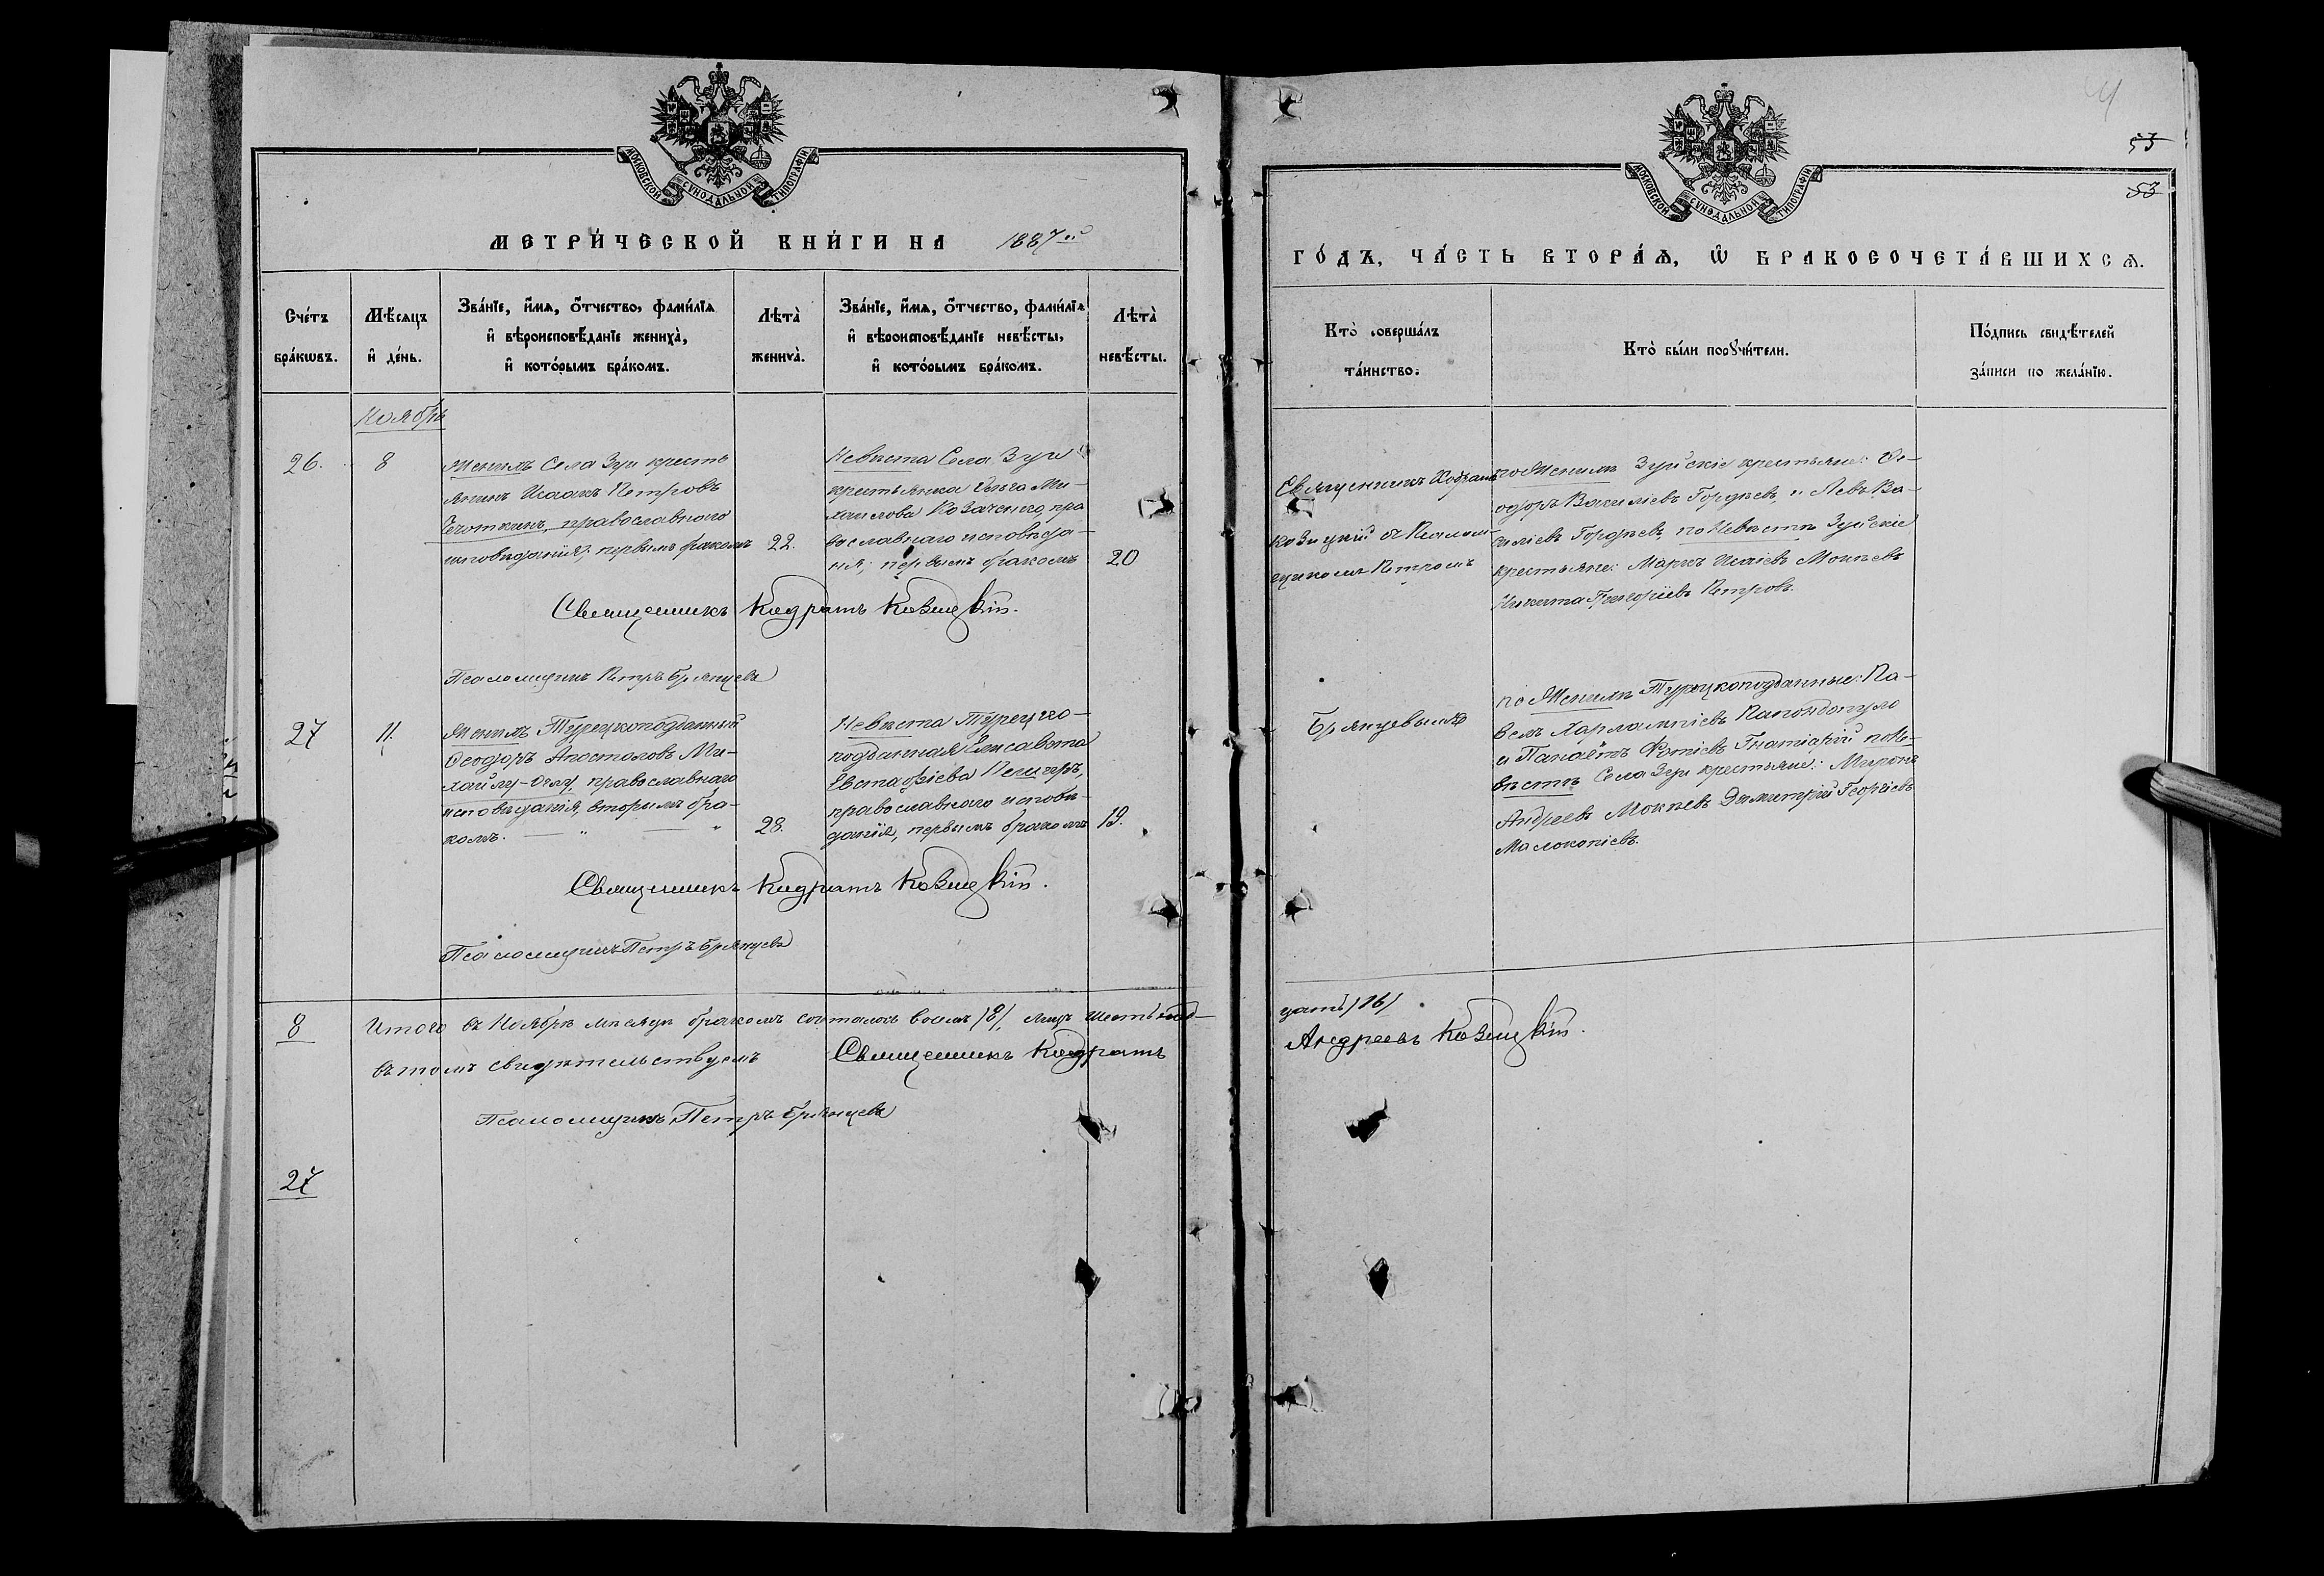 МОСКОВСКОЙ СУНОДАЛЬНОЙ ТИПОГРАФІИ
МЕТРИ́ЧЕСКОЙ КНИ́ГИ НА 1887ый
Сче́тъ бра́кѡвъ.
Мѣ́сяцъ и҆ де́нь.
Зва́нїе, и҆́мѧ, ѻ҆́тчество, фами́лїѧ
и҆ вѣроисповѣ́данїе жениха̀,
и҆ кото́рымъ бра́комъ.
Лѣта̀ жениха̀.
Зва́нїе, и҆́мѧ, ѻ҆́тчество, фами́лїѧ
и҆ вѣроисповѣ́данїе невѣ́сты,
и҆ кото́рымъ бра́комъ.
Лѣта̀ невѣ́сты.
Ноябрь
26.
8
Женихъ Села Зуи кресть
янинъ Исаакъ Петровъ
православнаго
исповѣданія, первымъ бракомъ
22.
Невѣста Села Зуи
крестьянка Ольга Ми-
хаилова Козаченко, пра
вославнаго исповѣда-
нія, первымъ бракомъ
20
Священникъ Кодратъ Козицкій.
Псаломщикъ Петръ Брянцевъ
27
11
Женихъ Турецкоподданный
Ѳеодоръ Апостоловъ Ми-
хайлу-Оглу, православнаго
исповѣданія, вторымъ бра-
комъ.
28.
Невѣста Турецко-
подданная Елисавета
Евстафіева
православнаго исповѣ-
данія, первымъ бракомъ
19.
Священникъ Кодратъ Козицкій.
Псаломщикъ Петръ Брянцевъ
8
Итого въ Ноябрѣ мѣсяцѣ бракомъ состоялось восемь /8/, лицъ шестьнад-
въ томъ свидѣтельствуемъ Священникъ Кодратъ
Псаломщикъ Петръ Брянцевъ
27
МОСКОВСКОЙ СУНОДАЛЬНОЙ ТИПОГРАФІИ
53
53
ГО́ДЪ, ЧА́СТЬ ВТОРА́Ѧ, Ѽ БРАКОСОЧЕТА́ВШИХСѦ.
Кто̀ соверша́лъ
та́инство.
Кто̀ бы́ли порꙋчи́тели.
По́дпись свидѣ́телей
за́писи по жела́нїю.
Священникъ Кодратъ
Козицкій съ Псалом-
щикомъ Петромъ
Брянцевымъ
по Женихѣ Зуйскіе крестьяне: Ѳе-
одоръ Василіевъ Гордѣевъ, и Левъ Ва-
силіевъ Гордѣевъ, по Невѣстѣ Зуйскіе
крестьяне: Маркъ Исаіевъ Мокѣевъ
Никита Григоріевъ Петровъ.
по Женихѣ Турецкоподданные: Па-
велъ Харлампіевъ Папондопуло
и Панаётъ Фотіевъ по Не-
вѣстѣ Села Зуи крестьяне: Миронъ
Андреевъ Мокѣевъ Димитрій Георгіевъ
дать /16/
Андреевъ Козицкій.